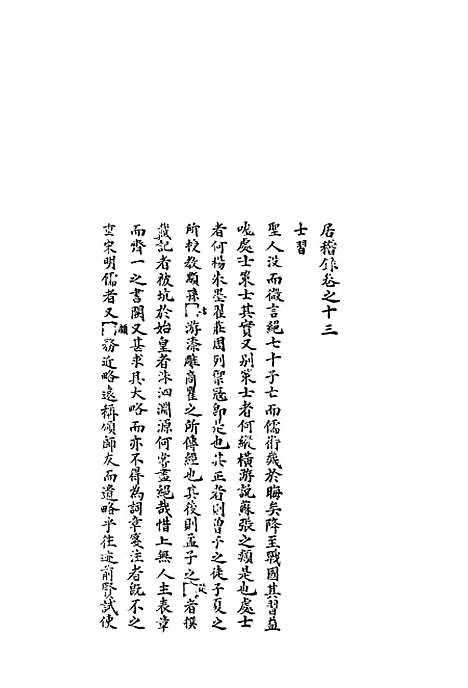 居稽錄卷之十三
士習
聖人没而微言絕七十子亡而儒術幾於晦矣降至戰國其習益
哤處士策士其實又别策士者何縱橫游說蘇張之類是也處士
者何楊朱墨翟莊周列禦寇郎是也其正者則曾子之徒子夏之
所授教顓孫言游漆雕商瞿之所傳經也其後則孟子之徒者撰
載記者被坑於始皇者洙泗淵源何嘗盡絕哉惜上無人主表章
而齊一之書闕又甚求其大略而亦不得為詞章箋注者既不之
重宋明儒者又顧務近略遠稱頌師友而遺略乎往述前賢試使